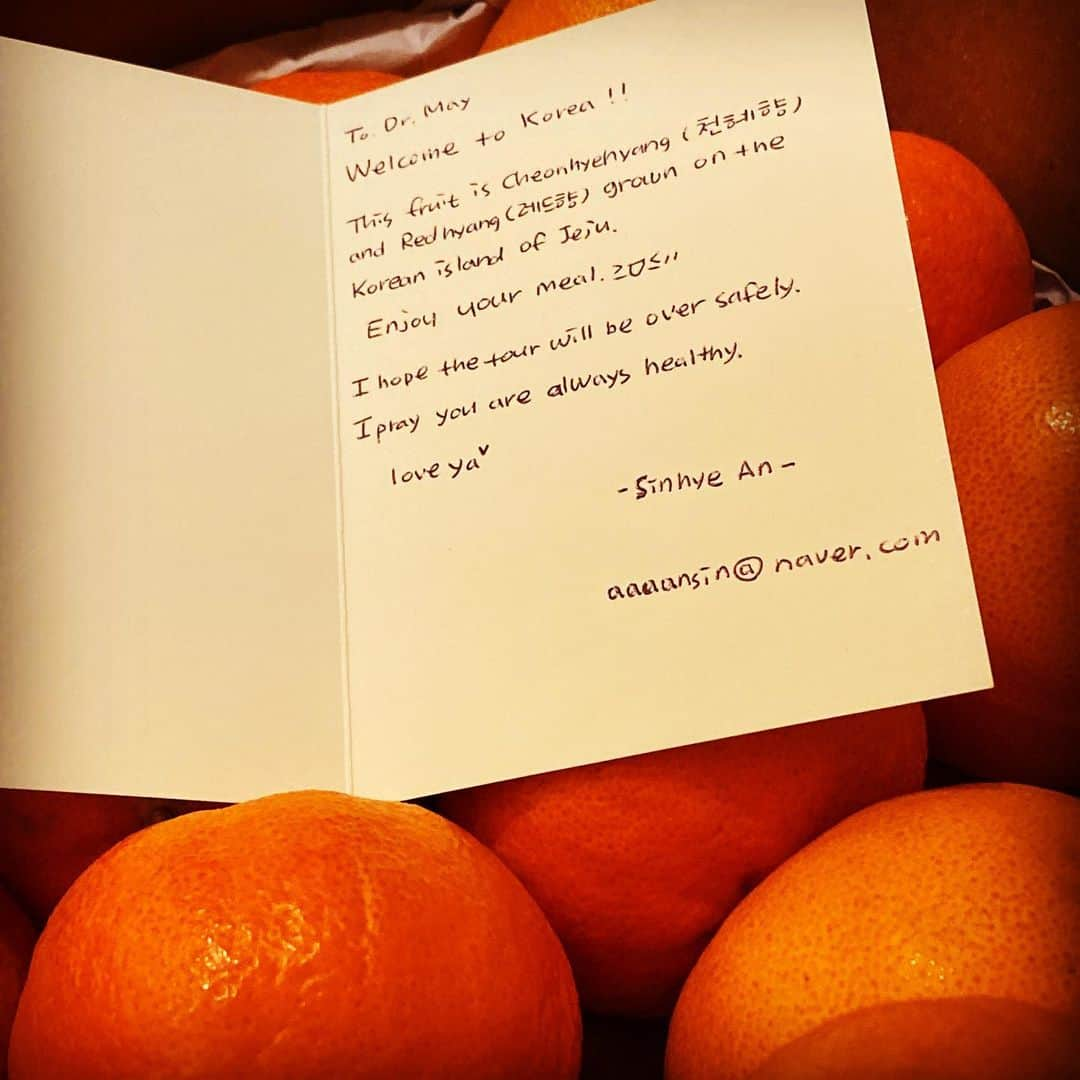 To. Dr. May
Welcome to Korea!!
This fruit is Cheonhyehyang (천혜향)
and Redhyang (레드향) grown on the
Korean island of Jeju.
Enjoy your meal.
I hope the tour will be over safely.
I pray you are always healthy.
love ya♥
-Sinhye An-
aaaansin@naver.com